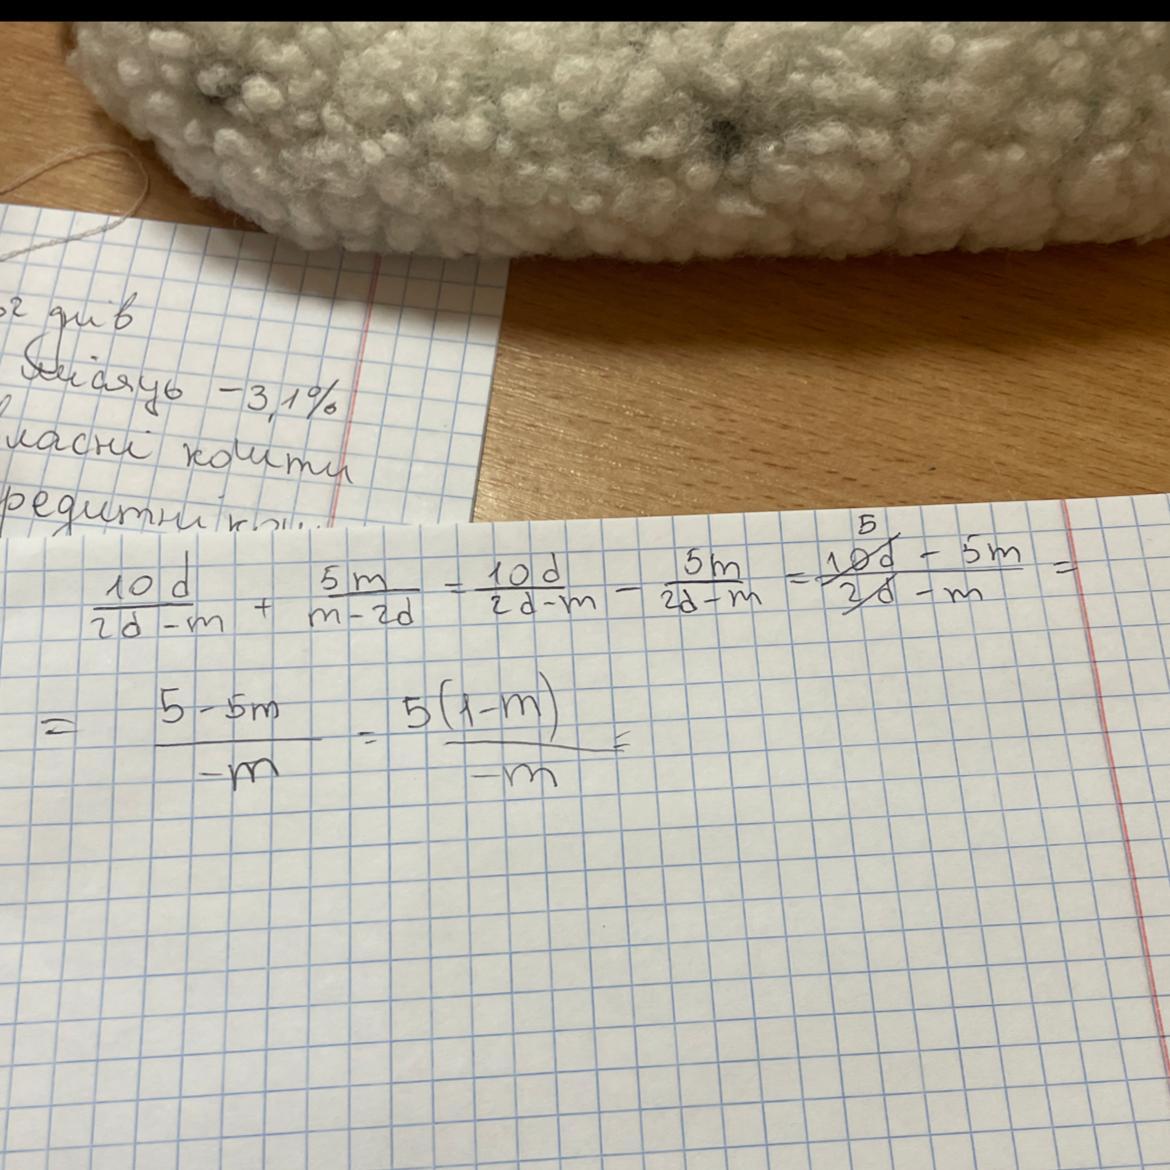 днів
місяць -3,1%
ласні кошти
редитні
10d/(2d-m) + 5m/(m-2d) = 10d/(2d-m) - 5m/(2d-m) = 5 (10d - 5m)/(2d-m) =
= (5-5m)/(-m) = 5(1-m)/(-m) =